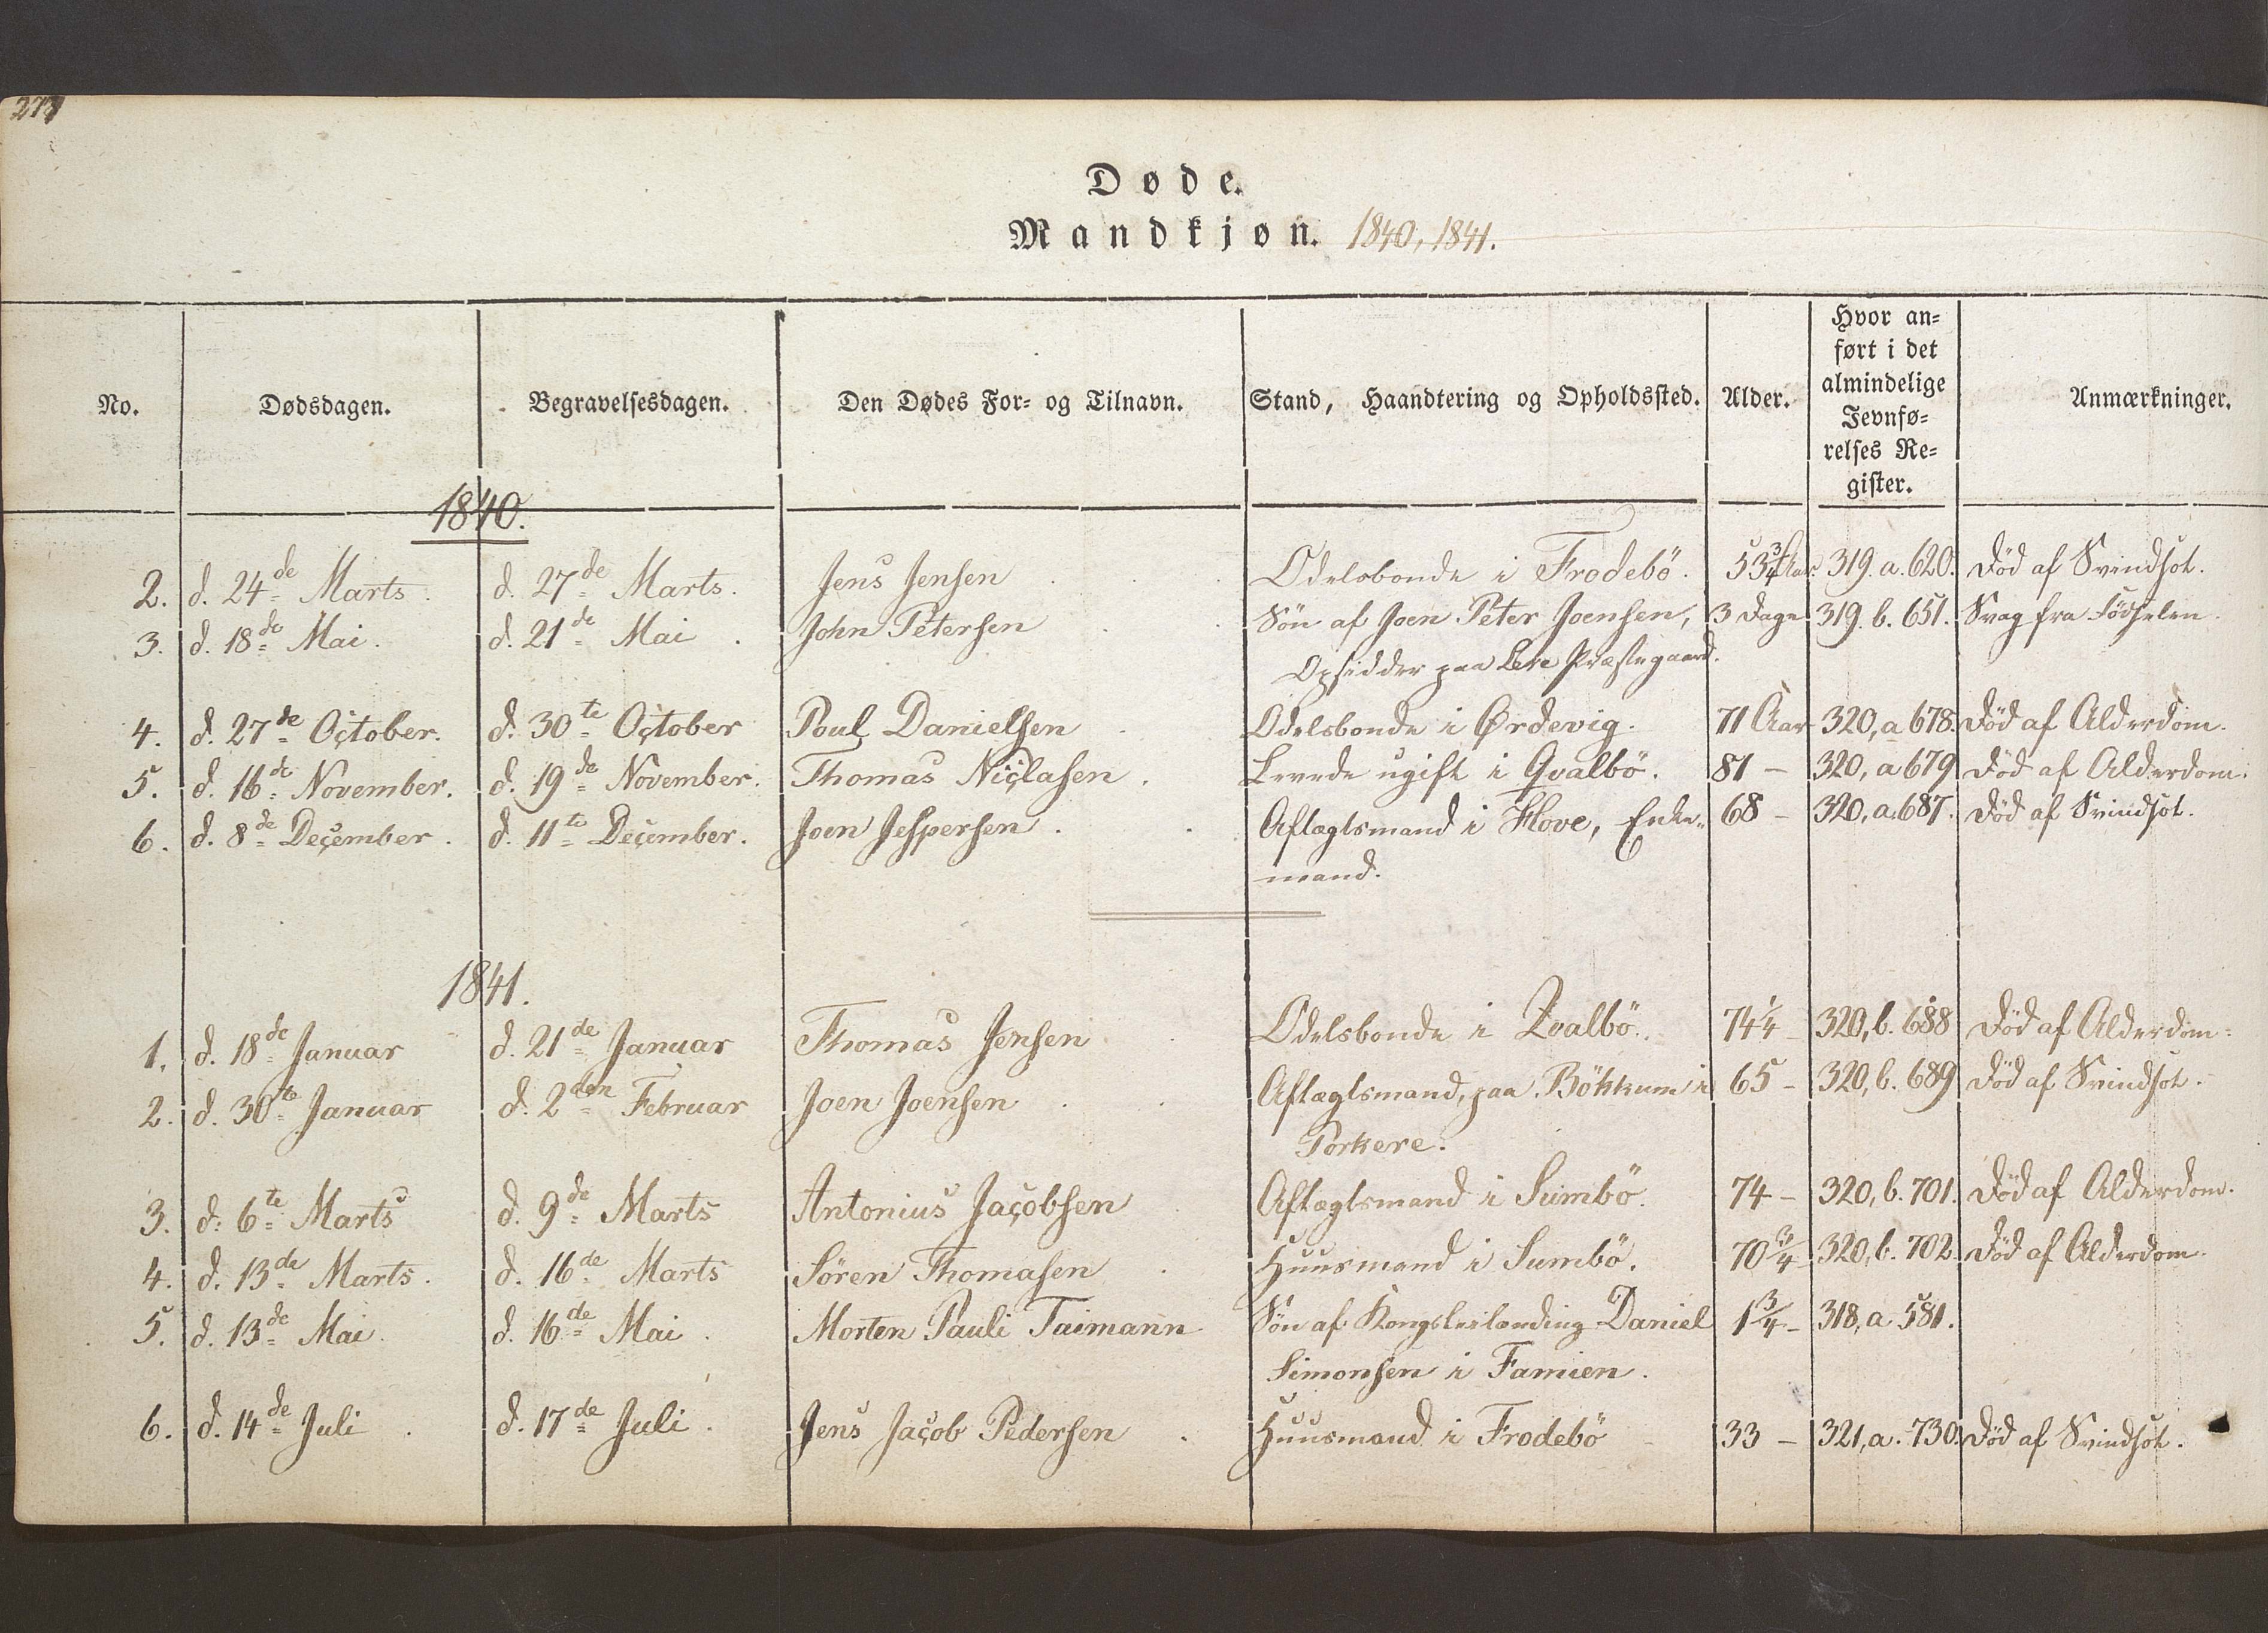 Døde.
Mandkjøn. 1840, 1841.
No. Dødsdagen. Begravelsesdagen. Den Dødes For- og Tilnavn. Stand, Haandtering og Opholdssted. Alder. Hvor an-
ført i det
almindelige
Jevnfø-
relses Re-
gister. Anmærkninger.
1840.
2. d. 24de Marts. d. 27de Marts. Jens Jensen Odelsbonde i Frodebö. 53 3/4 Aar 319. a. 620. Död af Svindsot.
3. d. 18de Mai. d. 21de Mai. John Petersen Sön af Joen Peter Joensen, 3 Dage 319. b. 651. Svag fra Födselen.
Opsidder paa Præstegaard.
4. d. 27de October. d. 30te October Poul Danielsen Odelsbonde i Ørdevig. 71 Aar 320, a 678. Död af Alderdom.
5. d. 16de November. d. 19de November. Thomas Niclasen. Levede ugift i Qvalbö. 81 – 320, a 679 Död af Alderdom.
6. d. 8de December. d. 11te December. Joen Jespersen. Aftægtsmand i Hove, Enke-
mand. 68 – 320, a. 687. Död af Svindsot.
1841.
1. d. 18de Januar d. 21de Januar Thomas Jensen Odelsbonde i Qvalbö. 74 1/4 – 320, b. 688 Död af Alderdom.
2. d. 30te Januar d. 2den Februar Joen Joensen Aftægtsmand, paa Bökkum i
Porkere. 65 – 320, b. 689 Död af Svindsot.
3. d. 6te Marts d. 9de Marts Antonius Jacobsen Aftægtsmand i Sumbö. 74 – 320, b. 701. Död af Alderdom.
4. d. 13de Marts. d. 16de Marts Sören Thomasen Huusmand i Sumbö. 70 3/4 – 320, b. 702. Död af Alderdom.
5. d. 13de Mai. d. 16de Mai. Morten Pauli Taimann Sön af Kongsleilænding Daniel
Simonsen i Famien. 1 3/4 – 318, a. 581.
6. d. 14de Juli. d. 17de Juli. Jens Jacob Pedersen Huusmand i Frodebö 33 – 321, a. 730. Död af Svindsot.